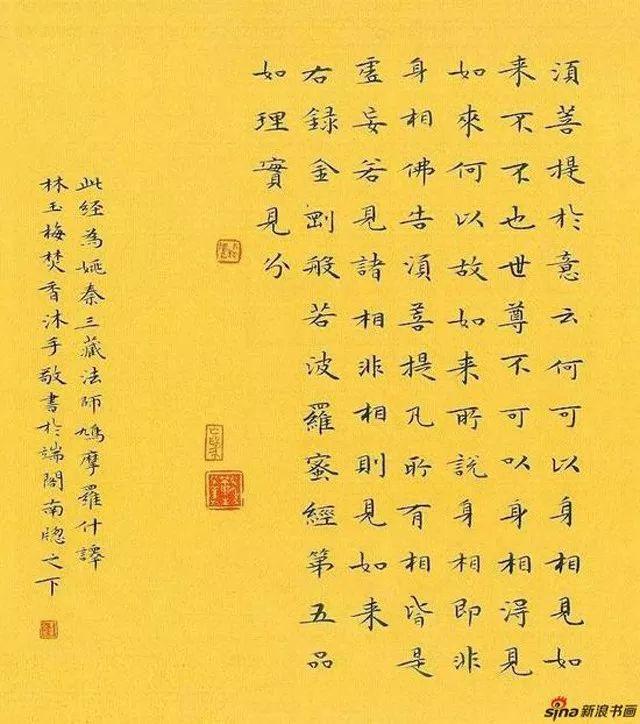 湏菩提於意云何可以身相見如
来不不也世尊不可以身相淂見
如來何以故如来所說身相即非
身相佛告湏菩提凡所有相皆是
虛妄若見諸相非相則見如来
右録金剛般若波羅蜜經第五品
如理實見分
此経為姚秦三藏法師鳩摩羅什譯
林玉梅焚香沐手敬書於端閣南牕之下
sina新浪书画